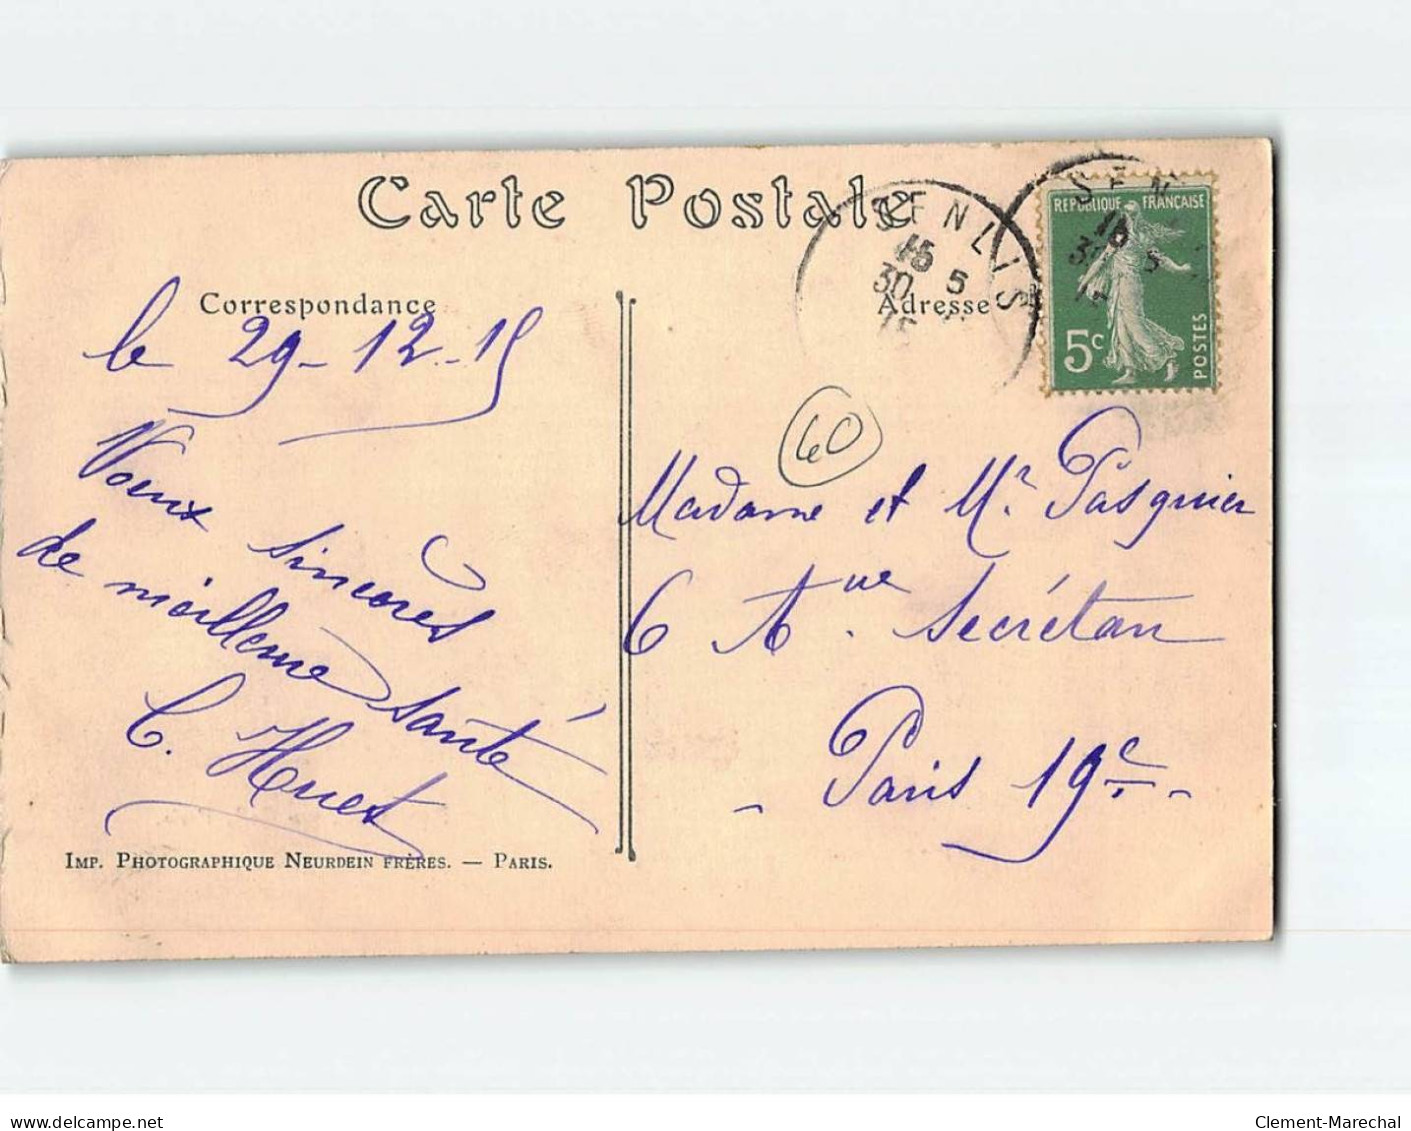 Carte Postale
Correspondance
le 29-12-15
Voeux sincères
de meilleure santé
C. Huet
IMP. PHOTOGRAPHIQUE NEURDEIN FRÈRES. — PARIS.
SENLIS
15 5
30
15
Adresse
SEN
15
30 5
RÉPUBLIQUE FRANÇAISE
5c
POSTES
60
Madame et Mr. Pasquier
6 Aue. Secrétan
- Paris 19e. -
delcampe.net
Clement-Marechal